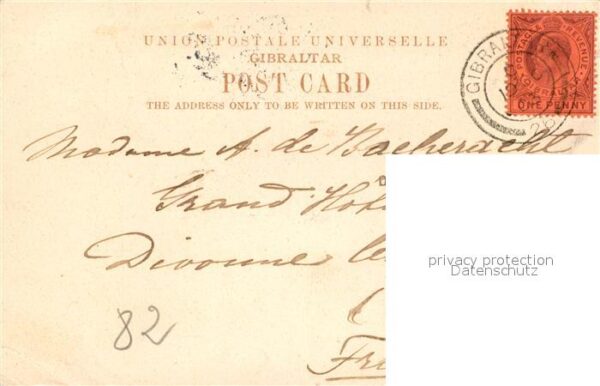 UNION POSTALE UNIVERSELLE
GIBRALTAR
POST CARD
THE ADDRESS ONLY TO BE WRITTEN ON THIS SIDE.
POSTAGE & REVENUE
GIBRALTAR
ONE PENNY
GIBRALTAR
Madame A. de Bacheracht
Grand Hôt
Divonne le
Fr
82
privacy protection
Datenschutz